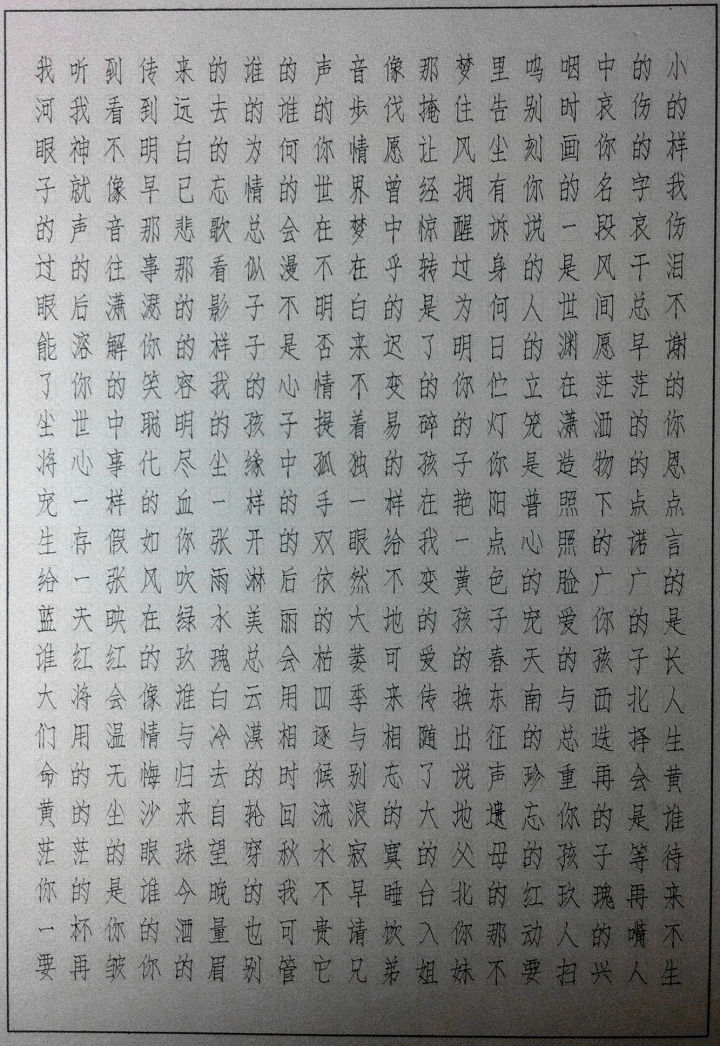 我听到传来的谁的声音像那梦里呜咽中的小
河我看到远去的谁的步伐掩住告别时哀伤的
眼神不明白的为何你情愿让风尘刻画你的样
子就像早已忘情的世界曾经拥有你的名字我
的声音那悲歌总会在梦中惊醒诉说一段哀伤
过的往事那看似漫不在乎转过身的是风干泪
眼后潇潺的影子不明白的是为何人世间总不
能溶解你的样子是否来迟了明日的渊愿早谢
了你的笑容我的心情不变的你伫立在茫茫的
尘世中聪明的孩子提着易碎的灯笼潇洒的你
将心事化尽尘缘中孤独的孩子你是造物的恩
宠一样的血一样的手一样在艳阳普照下点点
生存假如你张开的双眼给我一点心照的诺言
给一张风吹雨淋后依然不变黄色的脸广广的
蓝天映在绿水美丽的大地的孩子宠爱你的是
谁红红的玫瑰总会枯萎可爱的春天的孩子长
大将会像谁白云用四季来传换东南与西北人
们用温情与冷漠相逐与相随出征的总选择生
命的无悔归去的时候别忘了说声珍重再会黄
黄的尘沙来自轮回流浪的大地遗忘你的是谁
茫茫的眼珠望穿秋水寂寞的父母的孩子等待
你的是谁今晚的我不早睡台北的红玫瑰再来
一杯你的酒量也可贵请饮入你那动人的嘴不
要再皱你的眉别管它兄弟姐妹不要扫兴人生